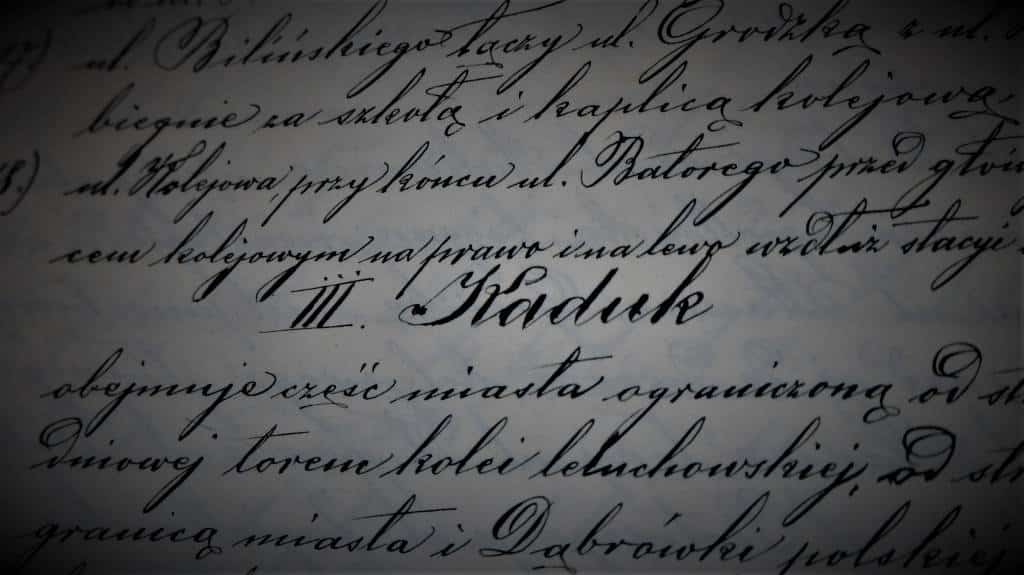 17) ul. Bilińskiego łączy ul. Grodzką z ul.
biegnie za szkołą i kaplicą kolejową
18.) ul. Kolejowa, przy końcu ul. Batorego przed głów
cem kolejowym na prawo i na lewo wzdłuż stacyi
III. Kaduk
obejmuje część miasta ograniczoną od st
dniowej torem kolei leluchowskiej, od str
granicą miasta i Dąbrówki polskiej